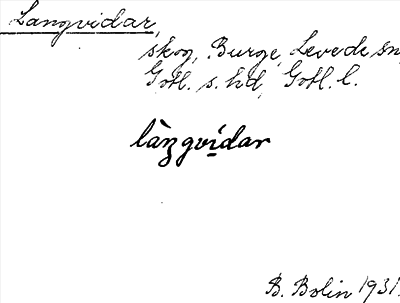 Langvidar,
skog, Burge, Levede sn,
Gotl. s. hd, Gotl. l.
làŋgvídar
B. Bolin 1931.